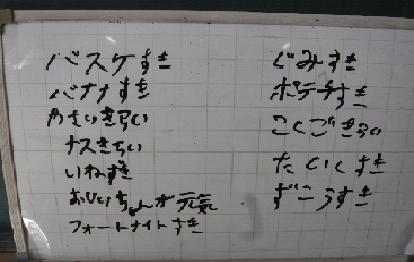 バスケすき
バナナすき
やさいきらい
ナスきらい
いぬすき
おじいちゃんが元気
フォートナイトすき
ぐみすき
ポテチすき
こくごきらい
たいいくすき
ずこうすき